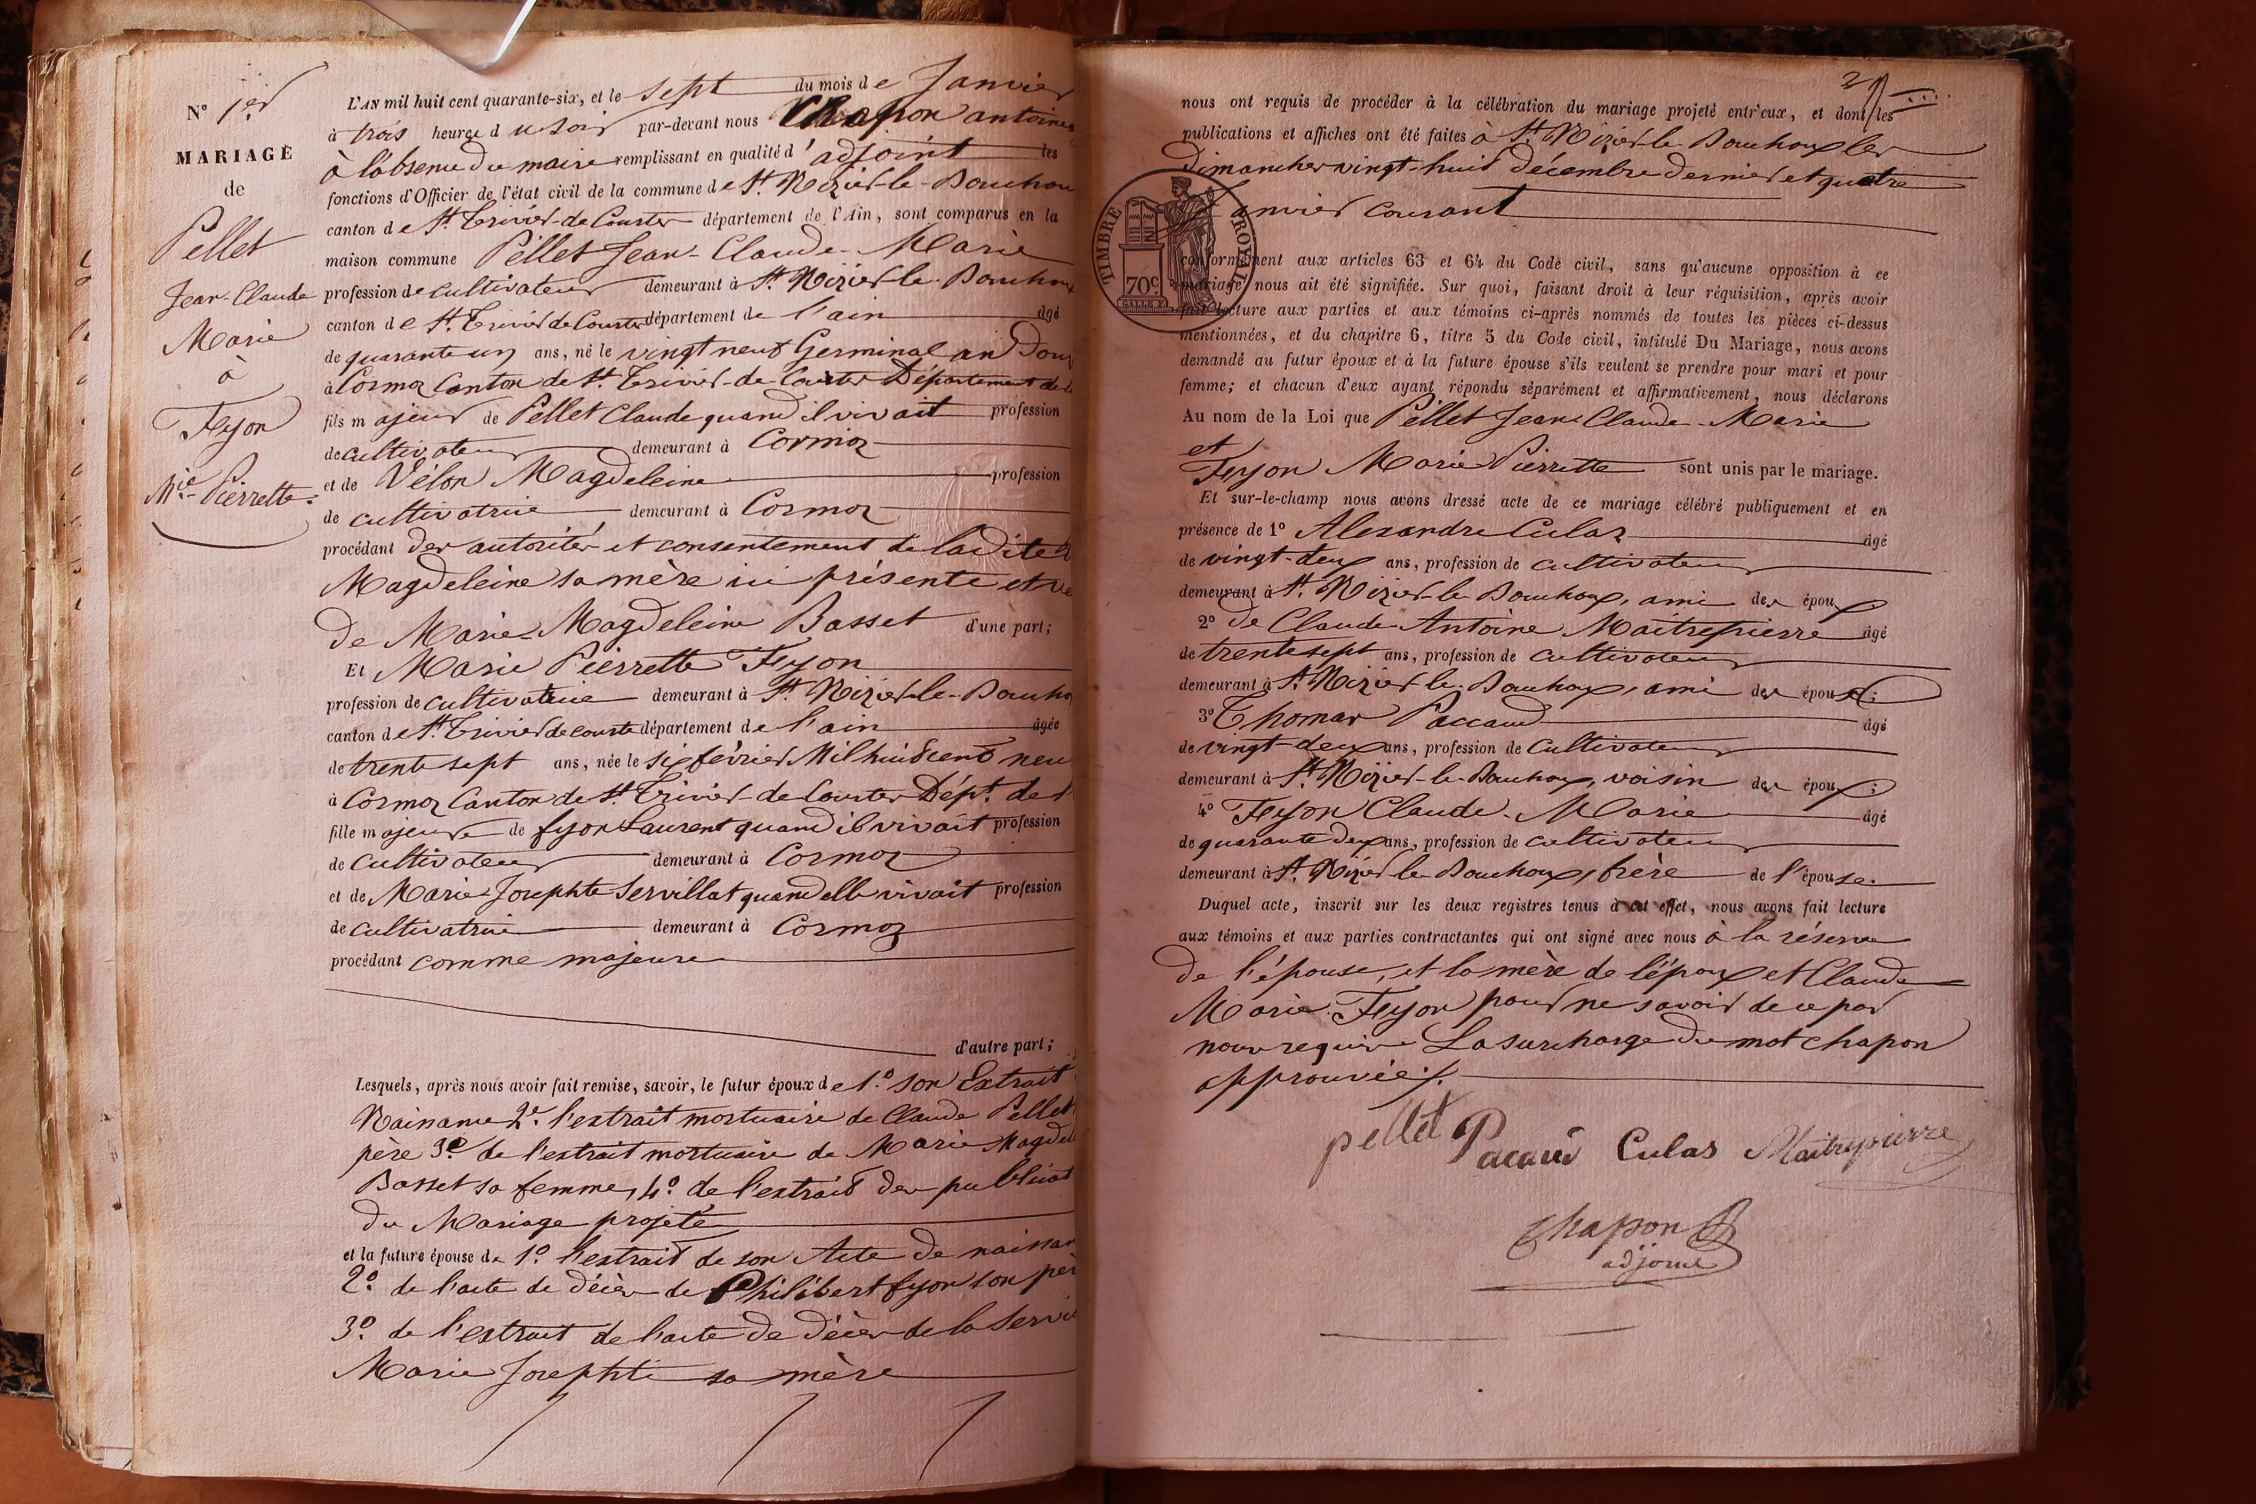 N° 1er
MARIAGE
de
Pellet
Jean-Claude
Marie
à
Feyon
Mie-Pierrette
L'AN mil huit cent quarante-six, et le sept du mois de Janvier
à trois heures du soir par-devant nous Chapon antoine
à l'absence du maire remplissant en qualité d'adjoint les
fonctions d'Officier de l'état civil de la commune de St. Nizier-le-Bouchou
canton de St. Trivier-de-Courtes département de l'Ain, sont comparus en la
maison commune Pellet Jean-Claude-Marie
profession de cultivateur demeurant à St. Nizier-le-Bouchou
canton de St. Trivier de Courtes département de l'ain âgé
de quarante un ans, né le vingt neuf Germinal an Douz
à Cormoz Canton de St. Trivier-de-Courtes Département de l
fils majeur de Pellet Claude quand il vivait profession
de cultivateur demeurant à Cormoz
et de Vélon Magdeleine profession
de cultivatrice demeurant à Cormoz
procédant des autorités et consentement de ladite
Magdeleine sa mère ici présente et ve
de Marie-Magdeleine Basset d'une part;
Et Marie Pierrette Feyon
profession de cultivatrice demeurant à St. Nizier-le-Boucho
canton de St. Trivier de courte département de l'ain âgée
de trente sept ans, née le six février Mil huit cent neu
à Cormoz Canton de St. Trivier-de-Courtes Dépt. de l
fille majeure de feyon Laurent quand il vivait profession
de cultivateur demeurant à Cormoz
et de Marie-Josephte Servillat quand elle vivait profession
de cultivatrice demeurant à Cormoz
procédant comme majeure
d'autre part;
Lesquels, après nous avoir fait remise, savoir, le futur époux de 1.° son Extrait
Nainance 2.° l'extrait mortuaire de Claude Pellet
père 3.° de l'extrait mortuaire de Marie Magdel
Basset sa femme, 4.° de l'extrait des publicat
du Mariage projeté
et la future épouse de 1.° l'extrait de son Acte de naissan
2.° de l'acte de décès de Philibert feyon son pèr
3.° de l'extrait de l'acte de décès de la Servi
Marie Josephte sa mère
2
nous ont requis de procéder à la célébration du mariage projeté entr'eux, et dont les
publications et affiches ont été faites à St. Nizier-le-Bouchoux les
dimanches vingt-huit décembre dernier et quatre
Janvier courant
TIMBRE ROYAL
70c
conformément aux articles 63 et 64 du Code civil, sans qu'aucune opposition à ce
mariage nous ait été signifiée. Sur quoi, faisant droit à leur réquisition, après avoir
fait lecture aux parties et aux témoins ci-après nommés de toutes les pièces ci-dessus
mentionnées, et du chapitre 6, titre 5 du Code civil, intitulé Du Mariage, nous avons
demandé au futur époux et à la future épouse s'ils veulent se prendre pour mari et pour
femme; et chacun d'eux ayant répondu séparément et affirmativement, nous déclarons
Au nom de la Loi que Pellet Jean-Claude-Marie
et
Feyon Marie Pierrette sont unis par le mariage.
Et sur-le-champ nous avons dressé acte de ce mariage célébré publiquement et en
présence de 1° Alexandre Culas âgé
de vingt-deux ans, profession de cultivateur
demeurant à St. Nizier-le-Bouchoux, ami des époux;
2° de Claude-Antoine Maitrepierre âgé
de trente sept ans, profession de cultivateur
demeurant à St. Nizier le-Bouchoux, ami des époux;
3° Thomas Paccaud âgé
de vingt-deux ans, profession de cultivateur
demeurant à St. Nizier-le-Bouchoux, voisin des époux;
4° Feyon Claude-Marie âgé
de quarante deux ans, profession de cultivateur
demeurant à St. Nizier le Bouchoux, frère de l'épouse.
Duquel acte, inscrit sur les deux registres tenus à cet effet, nous avons fait lecture
aux témoins et aux parties contractantes qui ont signé avec nous à la réserve
de l'épouse, et la mère de l'époux et Claude
Marie Feyon pour ne savoir de ce par
nous requis La surcharge du mot chapon
approuvée.
pellet Pacaud Culas Maitrepierre
Chapon
adjoint